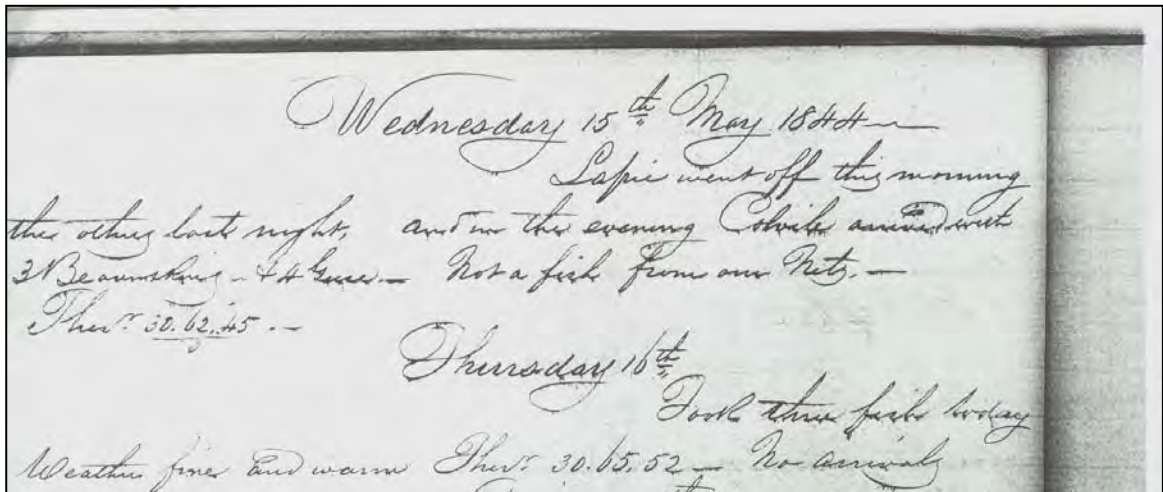 Wednesday 15th May 1844 —
Lapie went off this morning
the others last night, and in the evening Colvile arrived with
3 Beaverskins - & 4 Geese. — Not a fish from our Nets. —
Ther.r 30.62.45. —
Thursday 16th
Took three fish today
Weather fine and warm Ther.r 30.65.52 — No arrivals